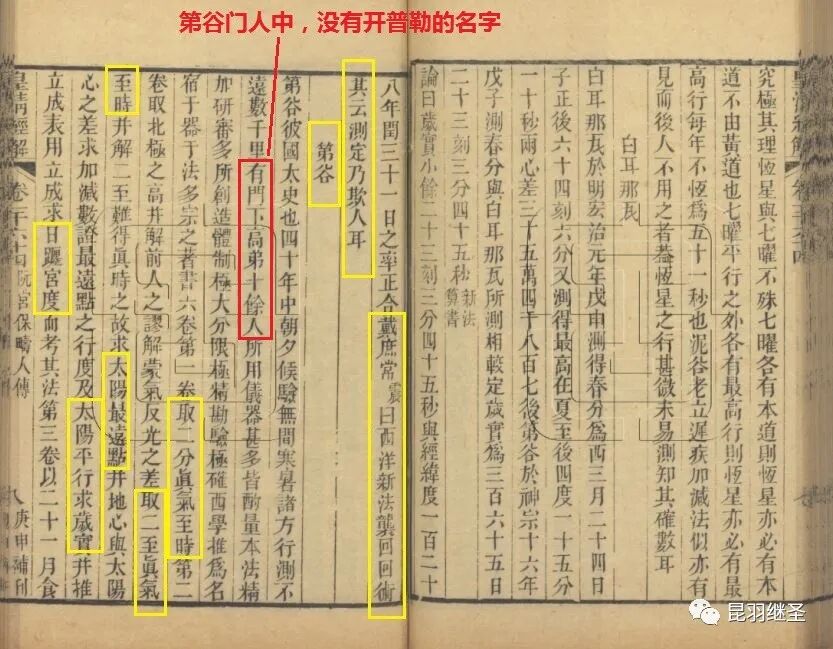 第谷门人中，没有开普勒的名字
究極其理恆星與七曜不殊七曜各有本道則恆星亦必有本
道不由黃道也七曜平行之外各有最高行則恆星亦必有最
高行每年不恆爲五十一秒也泥谷老立遲疾加減法似亦有
見而後人不用之者葢恆星之行甚微未易測知其確數耳
白耳那瓦
白耳那瓦於明宏治元年戊申測得春分爲西三月二十日
子正後六十四刻六分又測得最高在夏至後四度一十五分
一十秒兩心差三十五萬四千八百七後第谷於神宗十六年
戊子測春分與白耳那瓦所測相較定歲實爲三百六十五日
二十三刻三分四十五秒新法算書
論曰歲實小餘二十三刻三分四十五秒與經緯度一百二十
八年閏三十一日之率正合戴庶常震曰西洋新法襲回回術
其云測定乃欺人耳
第谷
第谷彼國太史也四十年中朝夕候驗無間寒暑諸方行測不
遠數千里有門下高弟十餘人所用儀器甚多皆酌量本法精
加研審多所創造體制極大分限極精勘驗極確西學推爲名
宿于器于法多宗之著書六卷第一卷取二分眞氣至時第二
卷取北極之高并解前人之謬解蒙氣反光之差取二至眞氣
至時并解二至難得眞時之故求太陽最遠點并地心與太陽
心之差求加減數證最遠點之行度及太陽平行求歲實并推
立成表用立成求日躔宮度而考其法第三卷以二十一月食
皇清經解
卷千六十四阮宮保疇人傳
八
庚申補刊
昆羽继圣